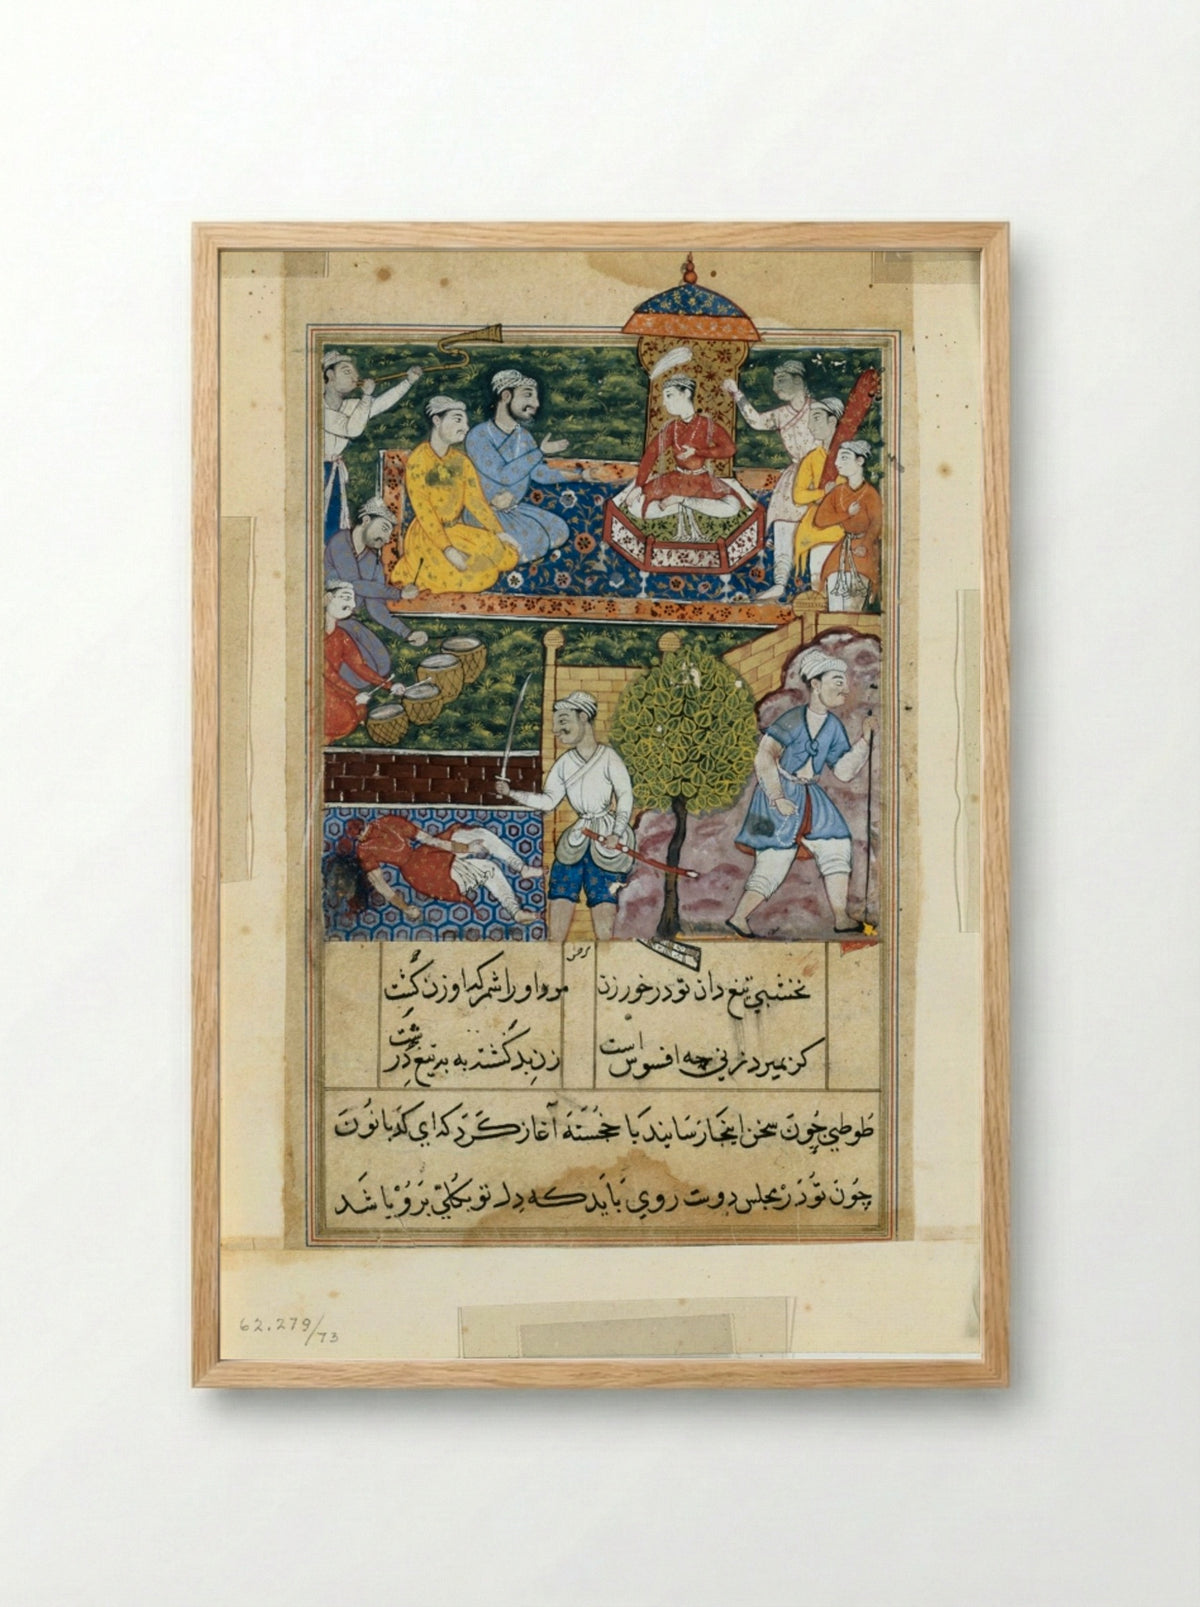 نخشبي تيغ دان تو در خور زن مرد او را شمر که او زن کشت
کز بميرد زني چه افسوس است زن بد کشته به به تيغ درشت
طوطي چون سخن اينجا رسانيد با خجسته آغاز کرد که اي کدبانو
چون تو در مجلس دوست روي بايد که دل تو بکلي برو باشد
62.279/73